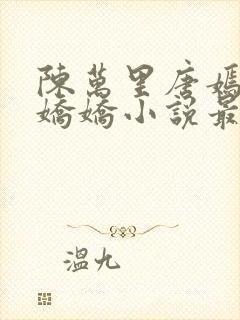 陳萬里唐嫣
嬌嬌小說最
溫九